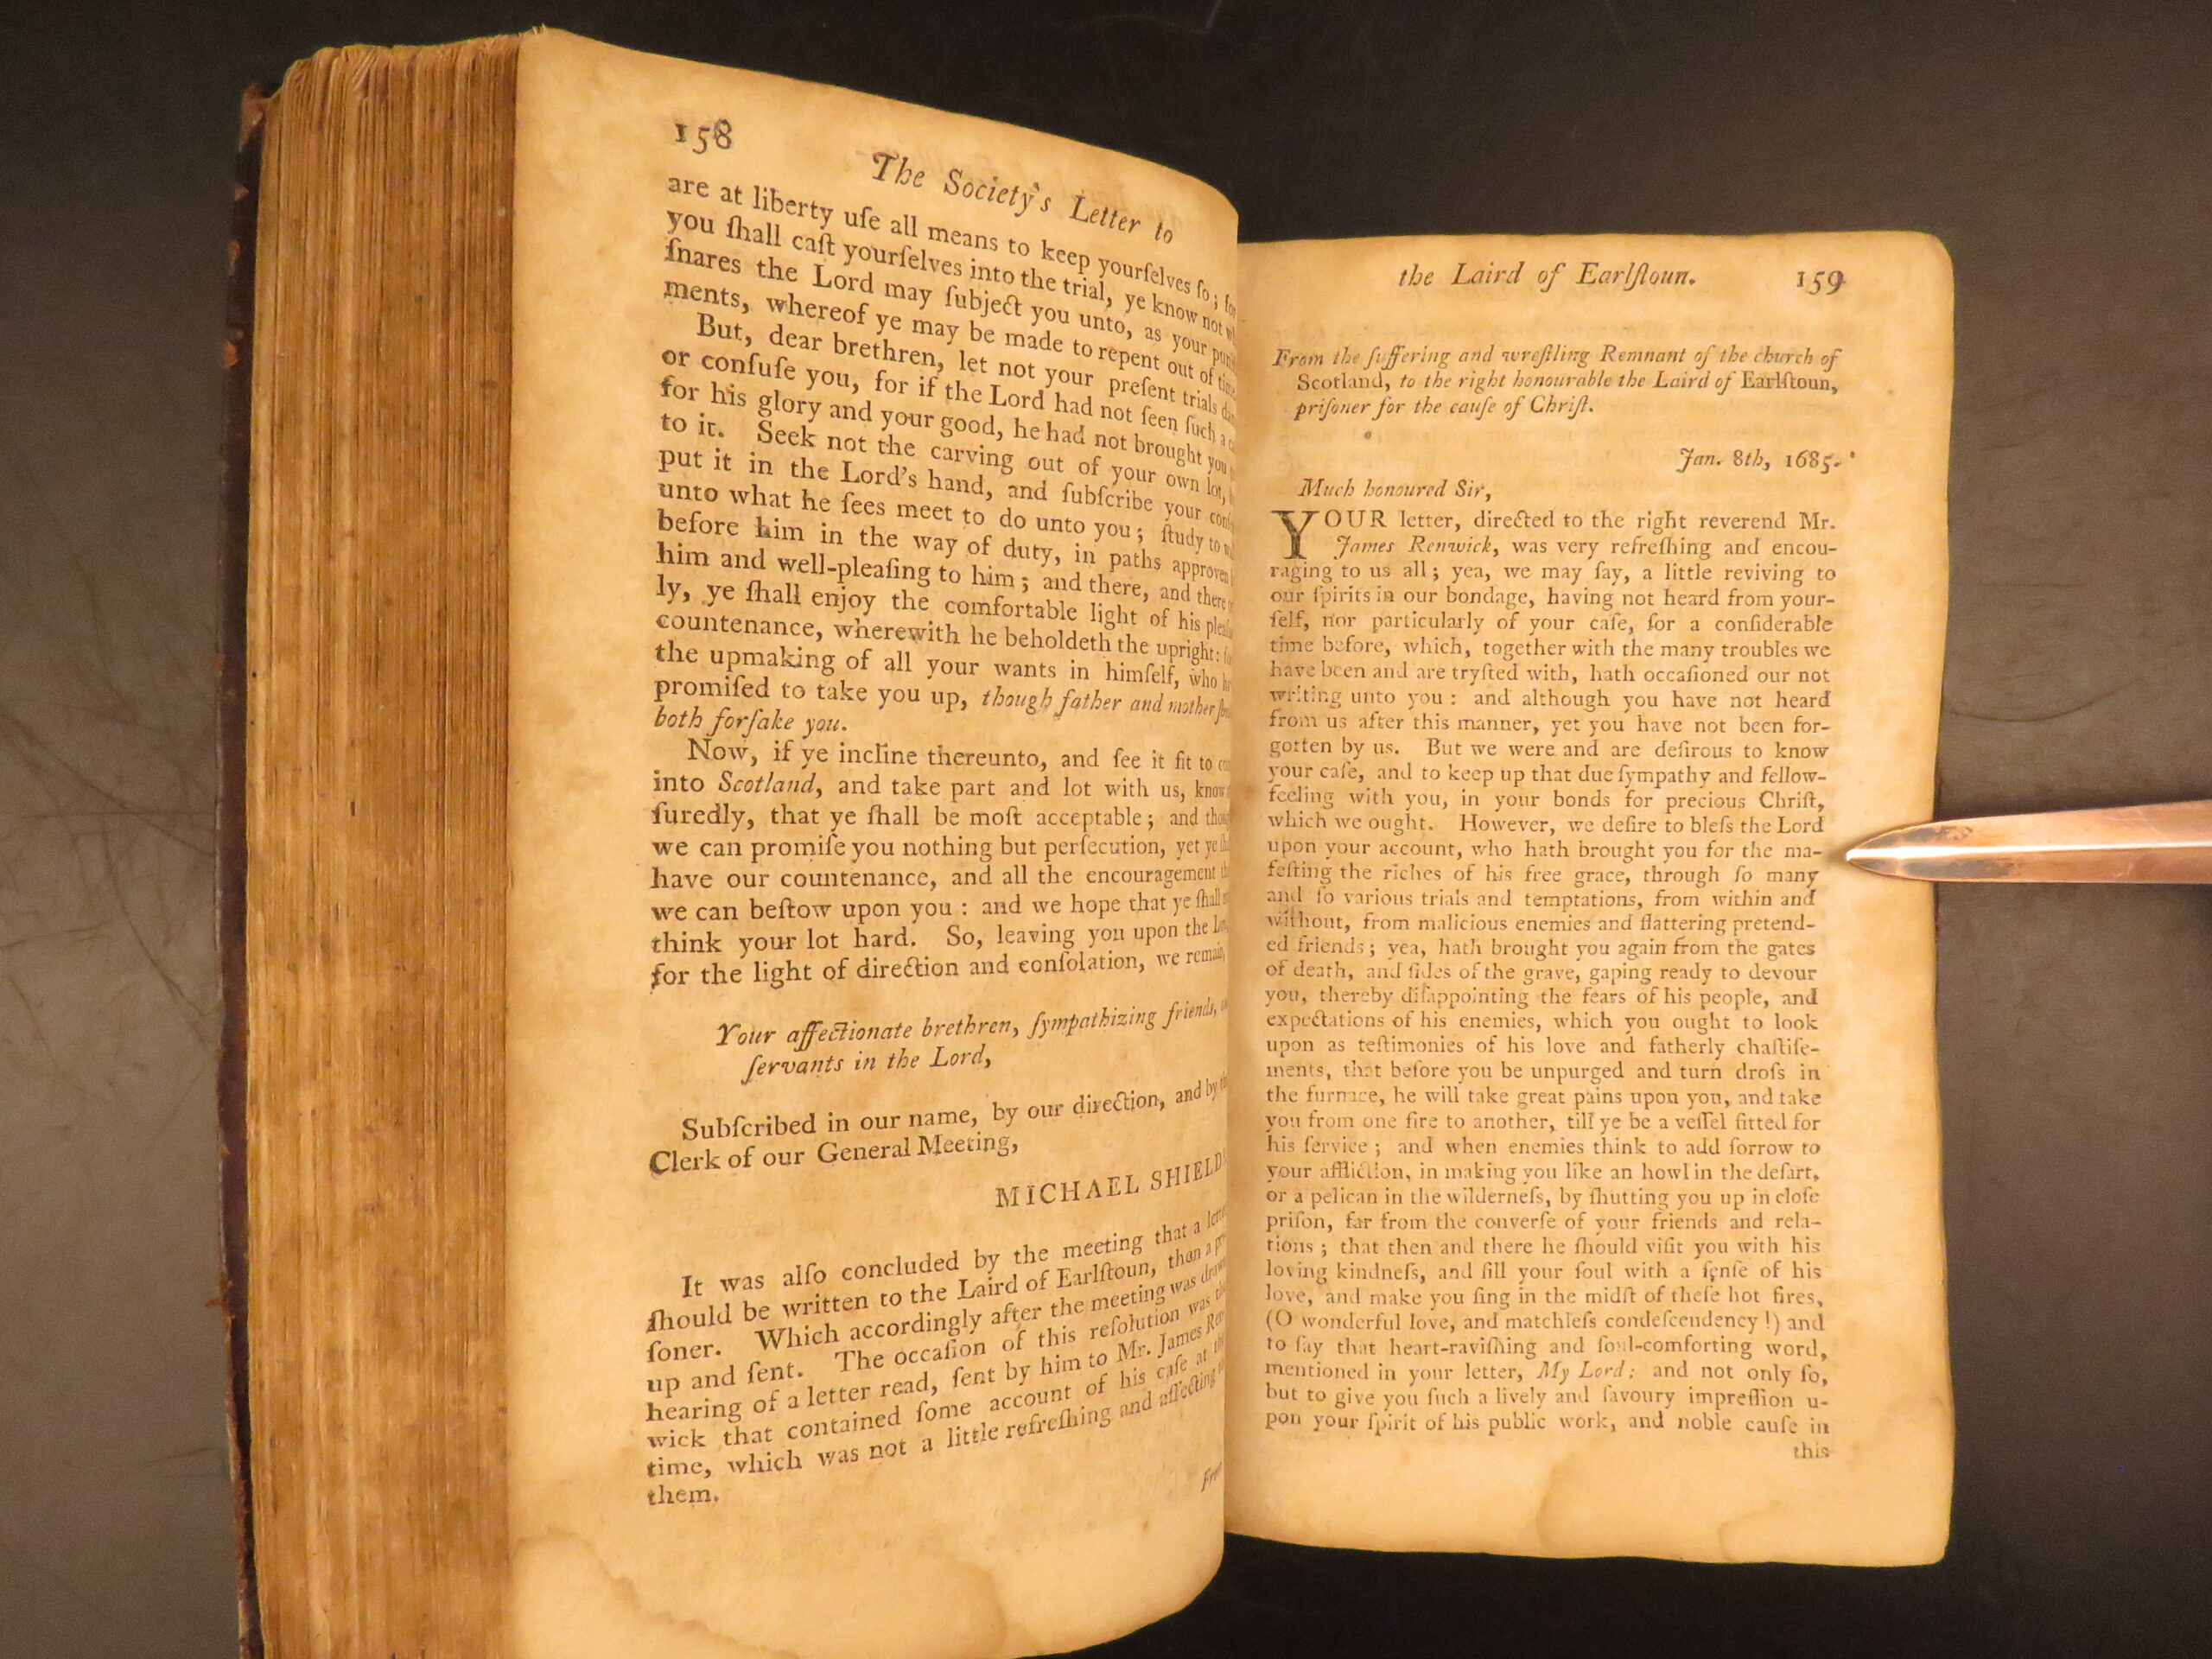 158
The Society's Letter to
are at liberty uſe all means to keep yourſelves ſo; for
you ſhall caſt yourſelves into the trial, ye know not
ſnares the Lord may ſubject you unto, as your
ments, whereof ye may be made to repent out of time
But, dear brethren, let not your preſent trials
or confuſe you, for if the Lord had not ſeen ſuch a
for his glory and your good, he had not brought you
to it. Seek not the carving out of your own lot,
put it in the Lord's hand, and ſubſcribe your
unto what he ſees meet to do unto you; ſtudy to
before him in the way of duty, in paths approven
him and well-pleaſing to him; and there, and there
ly, ye ſhall enjoy the comfortable light of his
countenance, wherewith he beholdeth the upright:
the upmaking of all your wants in himſelf, who
promiſed to take you up, though father and mother
both forſake you.
Now, if ye incline thereunto, and ſee it fit to
into Scotland, and take part and lot with us, know
ſuredly, that ye ſhall be moſt acceptable; and
we can promiſe you nothing but perſecution, yet ye
have our countenance, and all the encouragement
we can beſtow upon you: and we hope that ye ſhall
think your lot hard. So, leaving you upon the
for the light of direction and conſolation, we remain,
Your affectionate brethren, ſympathizing friends,
ſervants in the Lord,
Subſcribed in our name, by our direction, and by
Clerk of our General Meeting,
MICHAEL SHIELDS
It was alſo concluded by the meeting that a
ſhould be written to the Laird of Earlſtoun, than a
ſoner. Which accordingly after the meeting was
up and ſent. The occaſion of this reſolution was
hearing of a letter read, ſent by him to Mr. James
wick that contained ſome account of his caſe at
time, which was not a little refreſhing and affecting
them.
the Laird of Earlſtoun. 159
From the ſuffering and wreſtling Remnant of the church of
Scotland, to the right honourable the Laird of Earlſtoun,
priſoner for the cauſe of Chriſt.
Jan. 8th, 1685.
Much honoured Sir,
YOUR letter, directed to the right reverend Mr.
James Renwick, was very refreſhing and encou-
raging to us all; yea, we may ſay, a little reviving to
our ſpirits in our bondage, having not heard from your-
ſelf, nor particularly of your caſe, for a conſiderable
time before, which, together with the many troubles we
have been and are tryſted with, hath occaſioned our not
writing unto you: and although you have not heard
from us after this manner, yet you have not been for-
gotten by us. But we were and are deſirous to know
your caſe, and to keep up that due ſympathy and fellow-
feeling with you, in your bonds for precious Chriſt,
which we ought. However, we deſire to bleſs the Lord
upon your account, who hath brought you for the ma-
feſting the riches of his free grace, through ſo many
and ſo various trials and temptations, from within and
without, from malicious enemies and flattering pretend-
ed friends; yea, hath brought you again from the gates
of death, and ſides of the grave, gaping ready to devour
you, thereby diſappointing the fears of his people, and
expectations of his enemies, which you ought to look
upon as teſtimonies of his love and fatherly chaſtiſe-
ments, that before you be unpurged and turn droſs in
the furnace, he will take great pains upon you, and take
you from one fire to another, till ye be a veſſel fitted for
his ſervice; and when enemies think to add ſorrow to
your affliction, in making you like an howl in the deſart,
or a pelican in the wilderneſs, by ſhutting you up in cloſe
priſon, far from the converſe of your friends and rela-
tions; that then and there he ſhould viſit you with his
loving kindneſs, and fill your ſoul with a ſenſe of his
love, and make you ſing in the midſt of theſe hot fires,
(O wonderful love, and matchleſs condeſcendency!) and
to ſay that heart-raviſhing and ſoul-comforting word,
mentioned in your letter, My Lord: and not only ſo,
but to give you ſuch a lively and ſavoury impreſſion u-
pon your ſpirit of his public work, and noble cauſe in
this